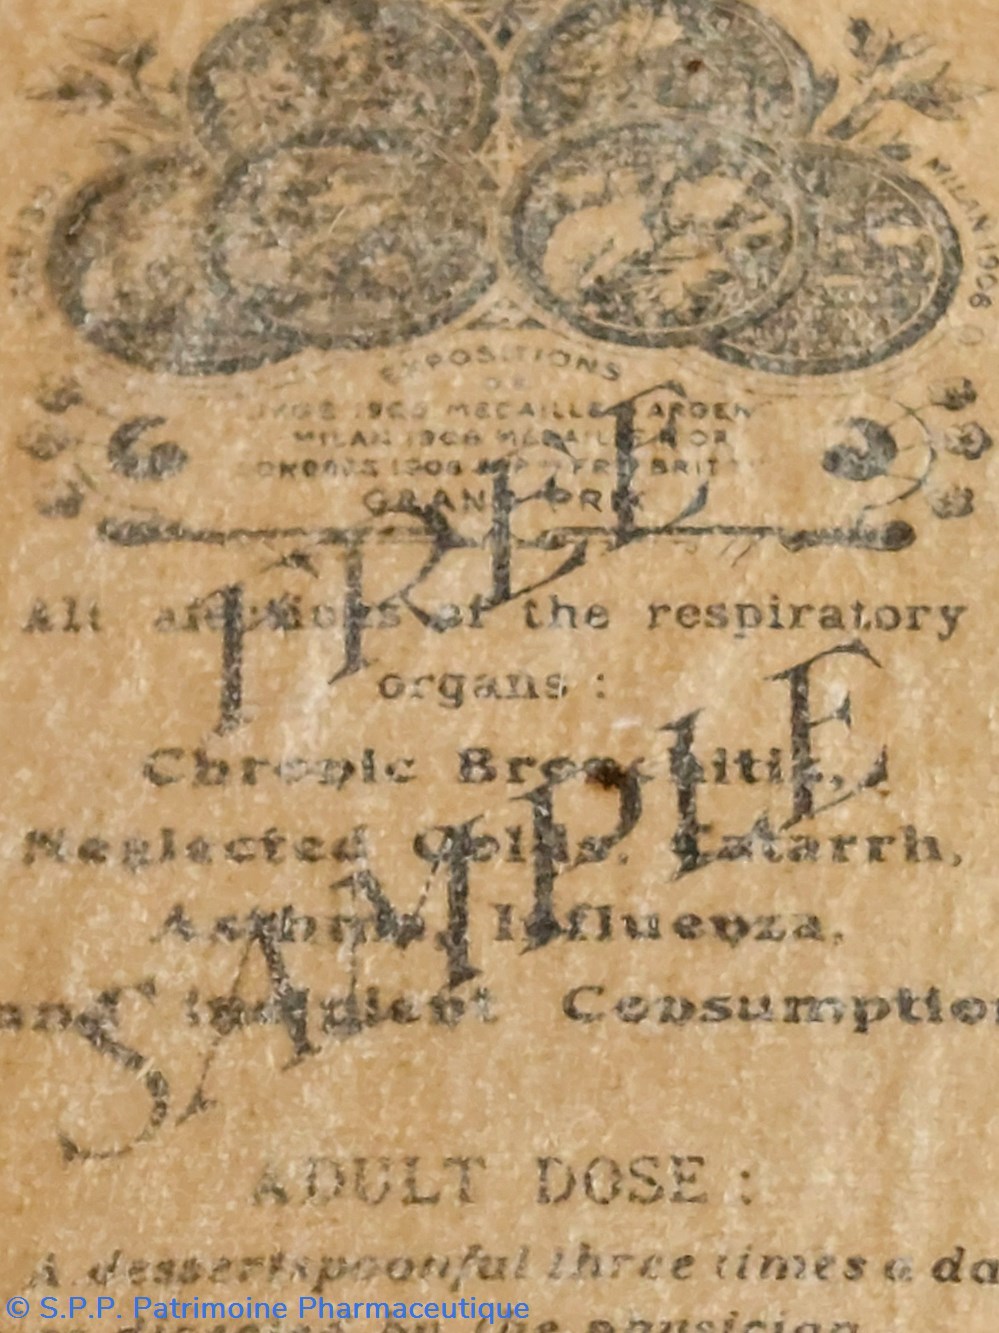 MILAN 1906
EXPOSITIONS
DE
1905 MEDAILLE ARGEN
MILAN 1906 MEDAILLE D'OR
LONDRES 1908 BRIT
GRAND PRIX
FREE
All afections of the respiratory
organs :
Chronic Bronchitis,
Neglected Colds, Catarrh,
Asthma, Influenza,
and incipient Consumption
SAMPLE
ADULT DOSE :
A dessertspoonful three times a da
© S.P.P. Patrimoine Pharmaceutique
the physician